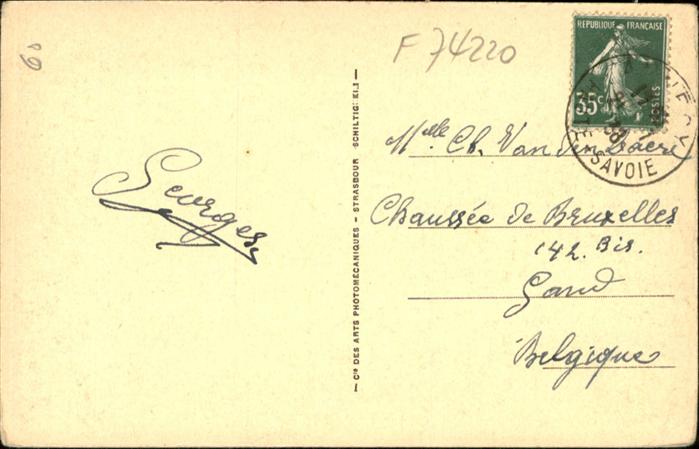 60
F 74220
REPUBLIQUE FRANÇAISE
35c
POSTES
SAVOIE
Georges
Mlle Ch. Van den
Chaussée de Bruxelles
142 Bis.
Gand
Belgique
— Cie DES ARTS PHOTOMÉCANIQUES - STRASBOUR SCHILTIGHEIM —